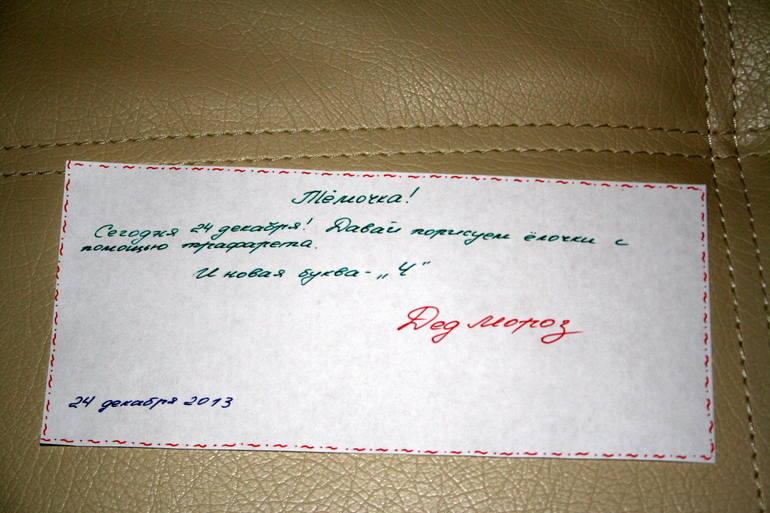 Тёмочка!
Сегодня 24 декабря! Давай порисуем ёлочки с
помощью трафарета.
И новая буква - „Ч"
Дед Мороз
24 декабря 2013